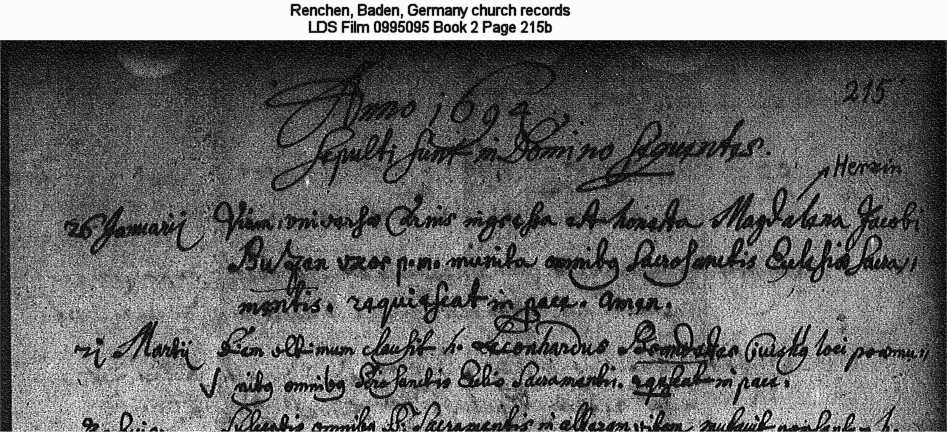 Renchen, Baden, Germany church records
LDS Film 0995095 Book 2 Page 215b
215
Anno 1694
Sepulti sunt in Domino sequentes.
Herzin
26 Januarii Viam universæ Carnis ingressa est honesta Magdalena Jacobi
uxor p.m. munita omnibq Sacrosanctis Eclesiæ Sacra
mentis. requiescat in pace. Amen.
21 Martii Diem ultimum clausit h. Leonhardus huiusq loci præmu
nitq omnibq Sacramenti. in pace.
omnibq Sacramentis in alteram vitam